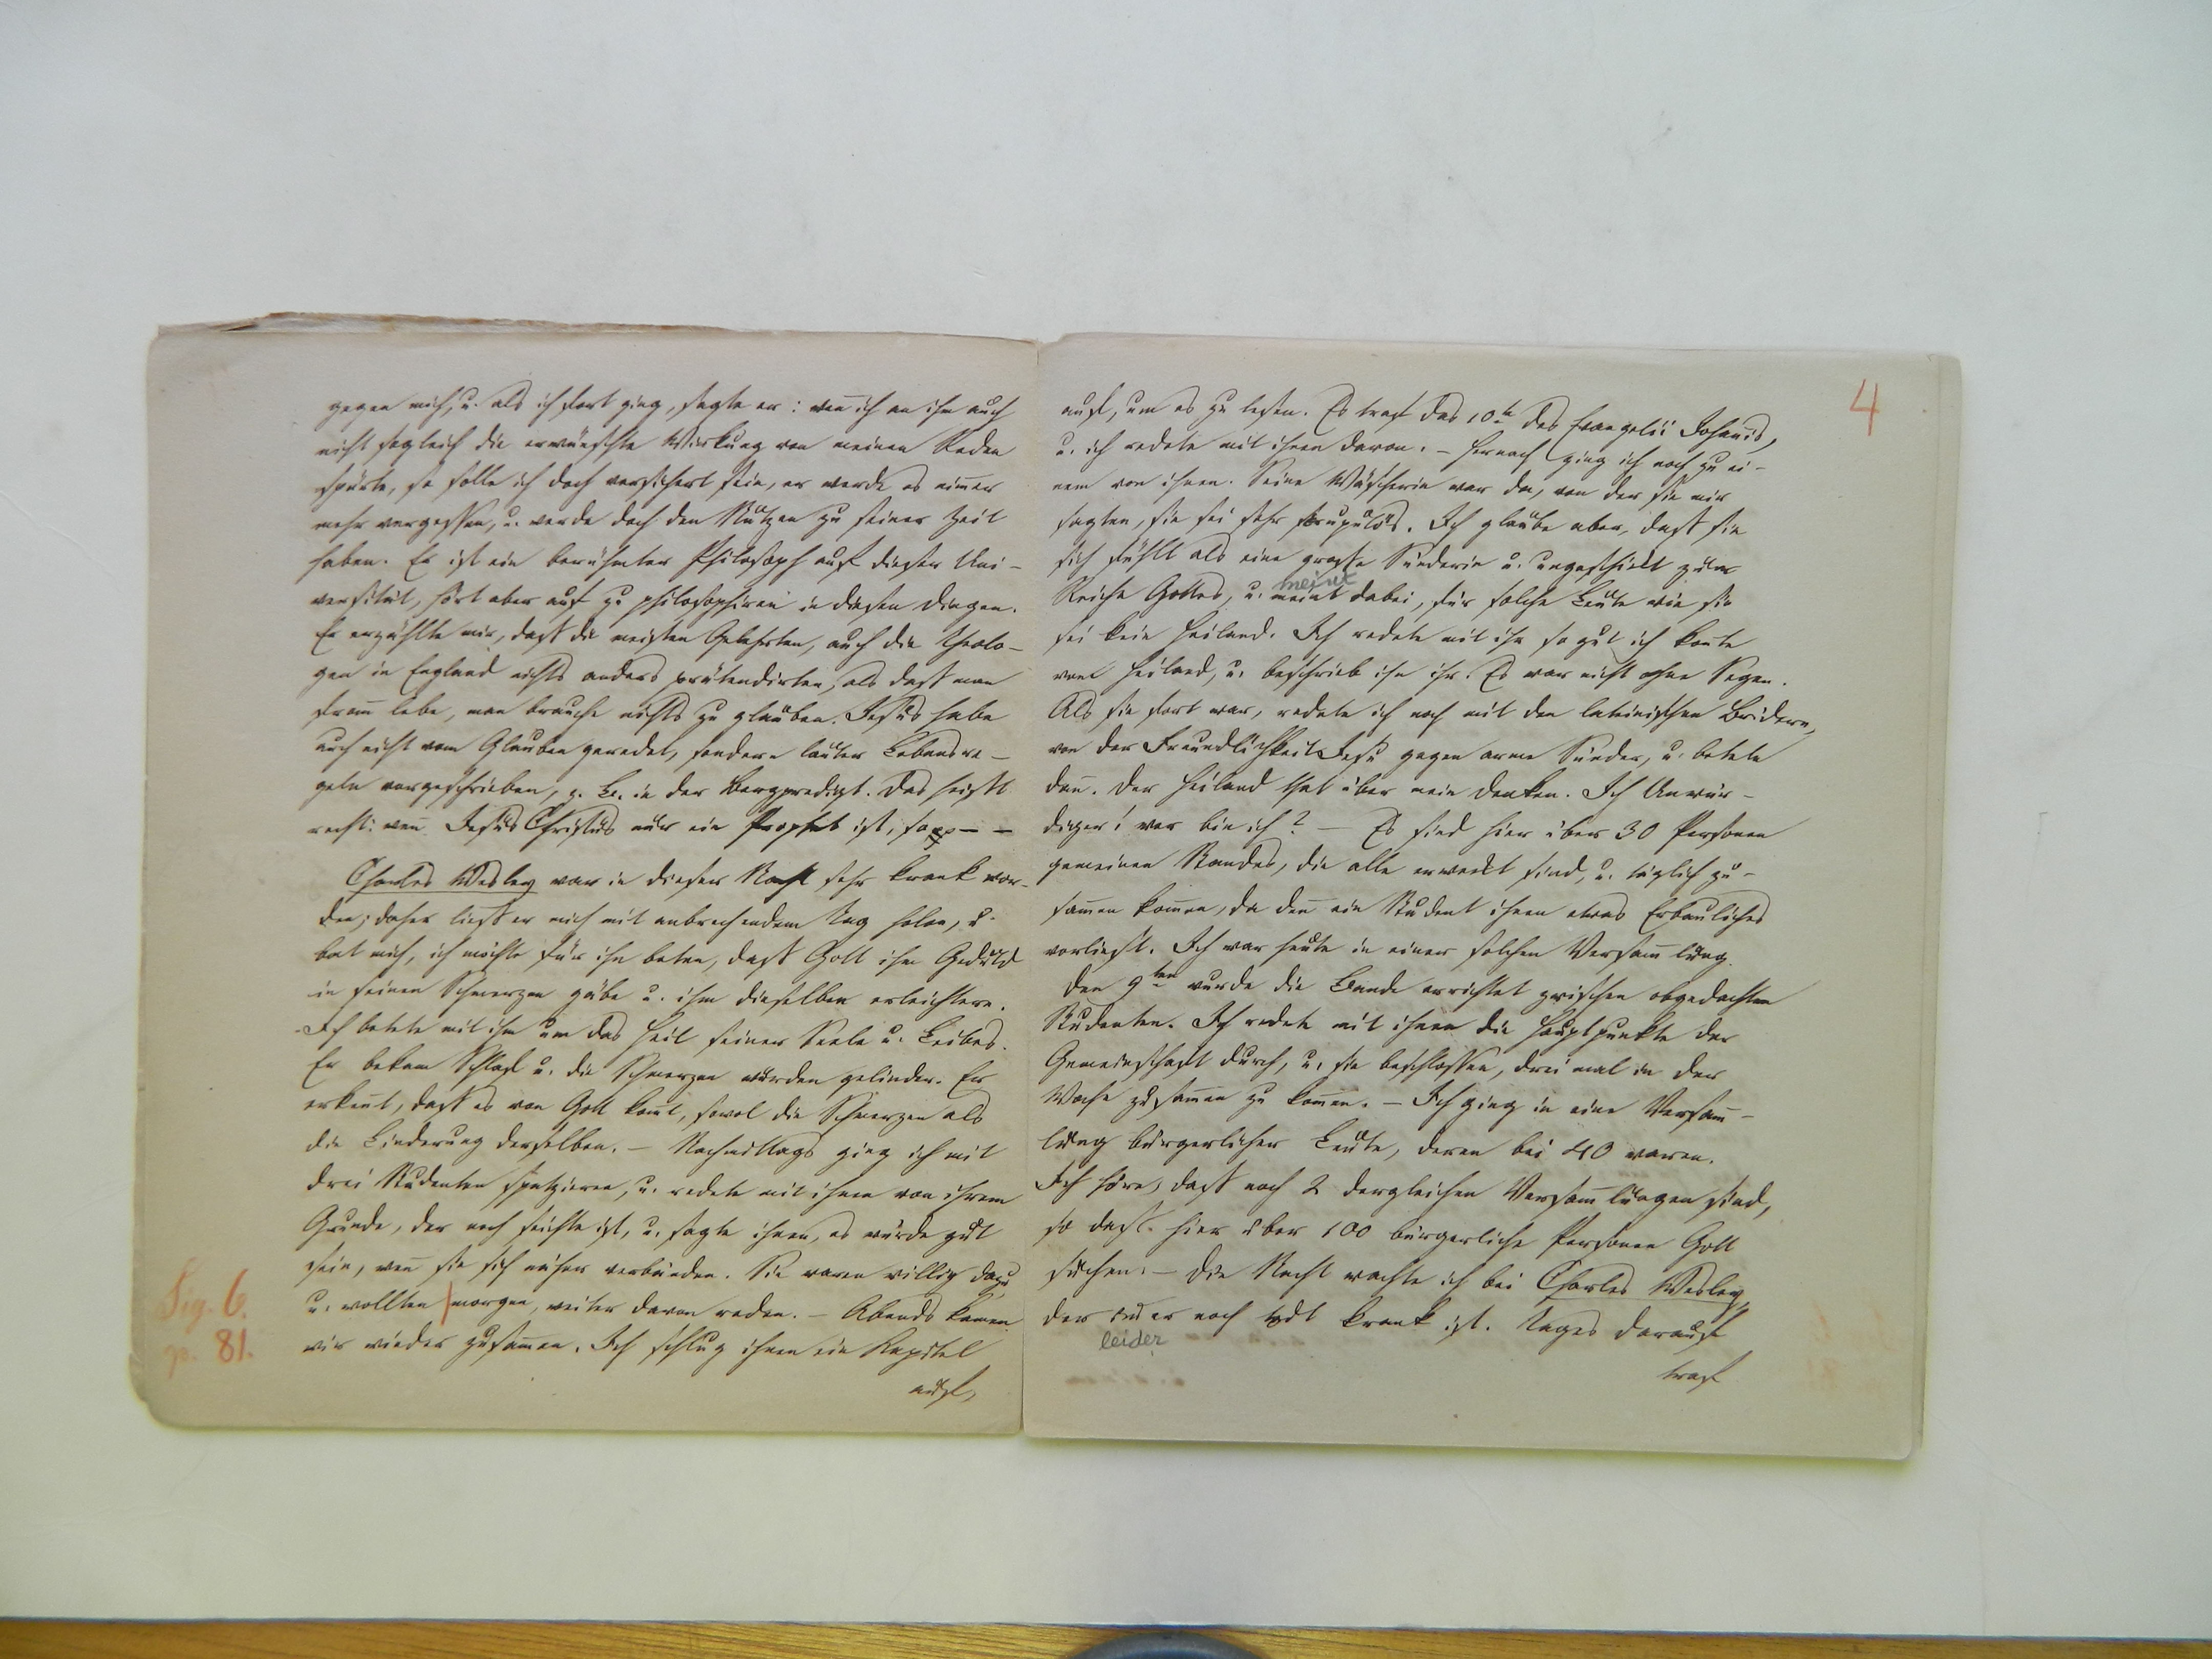 gegen mich, u. als ich fort ging, sagte er: wen̄ ich an ihm auch
nicht sogleich die erwünschte Wirkung von meinen Reden
spürte, so solle ich doch versichert sein, er werde es nim̄er
mehr vergessen, u. werde doch den Nutzen zu seiner Zeit
haben. Er ist ein berühmter Philosoph auf dieser Uni-
versität, hört aber auf zu philosophiren in diesen Dingen.
Er erzählte mir, dass die meisten Gelehrten, auch die Theolo-
gen in England nichts anders prätendirten, als dass man
from̄ lebe, man brauche nichts zu glauben. Jesus habe
auch nicht vom Glauben geredet, sondern lauter Lebensre-
geln vorgeschrieben, z. B. in der Bergpredigt. Das heisst
recht: wen̄ Jesus Christus nur ein Prophet ist, so
Charles Wesley war in dieser Nacht sehr krank wor-
den; daher liess er mich mit anbrechendem Tag holen, u.
bat mich, ich möchte für ihn beten, dass Gott ihm Geduld
in seinen Schmerzen gäbe u. ihm dieselben erleichtere.
Ich betete mit ihm um das Heil seiner Seele u. Leibes.
Er bekam Schlaf u. die Schmerzen wurden gelinder. Er
erken̄t, dass es von Gott kom̄t, sowol die Schmerzen als
die Linderung derselben. – Nachmittags ging ich mit
drei Studenten spatzieren, u. redete mit ihnen von ihrem
Grunde, der noch seichte ist, u. sagte ihnen, es würde gut
sein, wen̄ sie sich näher verbänden. Sie waren willig dazu,
u. wollten morgen, weiter davon reden. – Abends kamen
wir wieder zusam̄en. Ich schlug ihnen ein Kapitel
auf,
Sig. 6.
p. 81.
4
auf, um es zu lesen. Es traf das 10te des Evangelii Johan̄is,
u. ich redete mit ihnen davon. – Hernach ging ich noch zu ei-
nem von ihnen. Seine Wäscherin war da, von der sie mir
sagten, sie sei sehr skrupulös. Ich glaube aber, dass sie
sich fühlt als eine grosse Sünderin u. ungeschickt zum
meint
Reiche Gottes, u. meint dabei, für solche Leute wie sie
sei kein Heiland. Ich redete mit ihr so gut ich kon̄te
vom Heiland, u. beschrieb ihn ihr. Es war nicht ohne Segen.
Als sie fort war, redete ich noch mit den lateinischen Brüdern,
von der Freundlichkeit Jesu gegen arme Sünder, u. betete
dan̄. Der Heiland that über mein Denken. Ich Unwür-
diger! wer bin ich? – Es sind hier über 30 Personen
gemeinen Standes, die alle erweckt sind, u. täglich zu-
sam̄en kom̄en, da den̄ ein Student ihnen etwas Erbauliches
vorliest. Ich war heute in einer solchen Versam̄lung.
Den 9ten wurde die Bande errichtet zwischen obgedachten
Studenten. Ich redete mit ihnen die Hauptpunkte der
Gemeinschaft durch, u. sie beschlossen, drei mal in der
Woche zusam̄en zu kom̄en. – Ich ging in eine Versam̄-
lung bürgerlicher Leute, deren bei 40 waren.
Ich höre, dass noch 2 dergleichen Versam̄lungen sind,
so dass hier über 100 bürgerliche Personen Gott
suchen. – Die Nacht wachte ich bei Charles Wesley,
der noch krank ist. Tages darauf
leider
traf